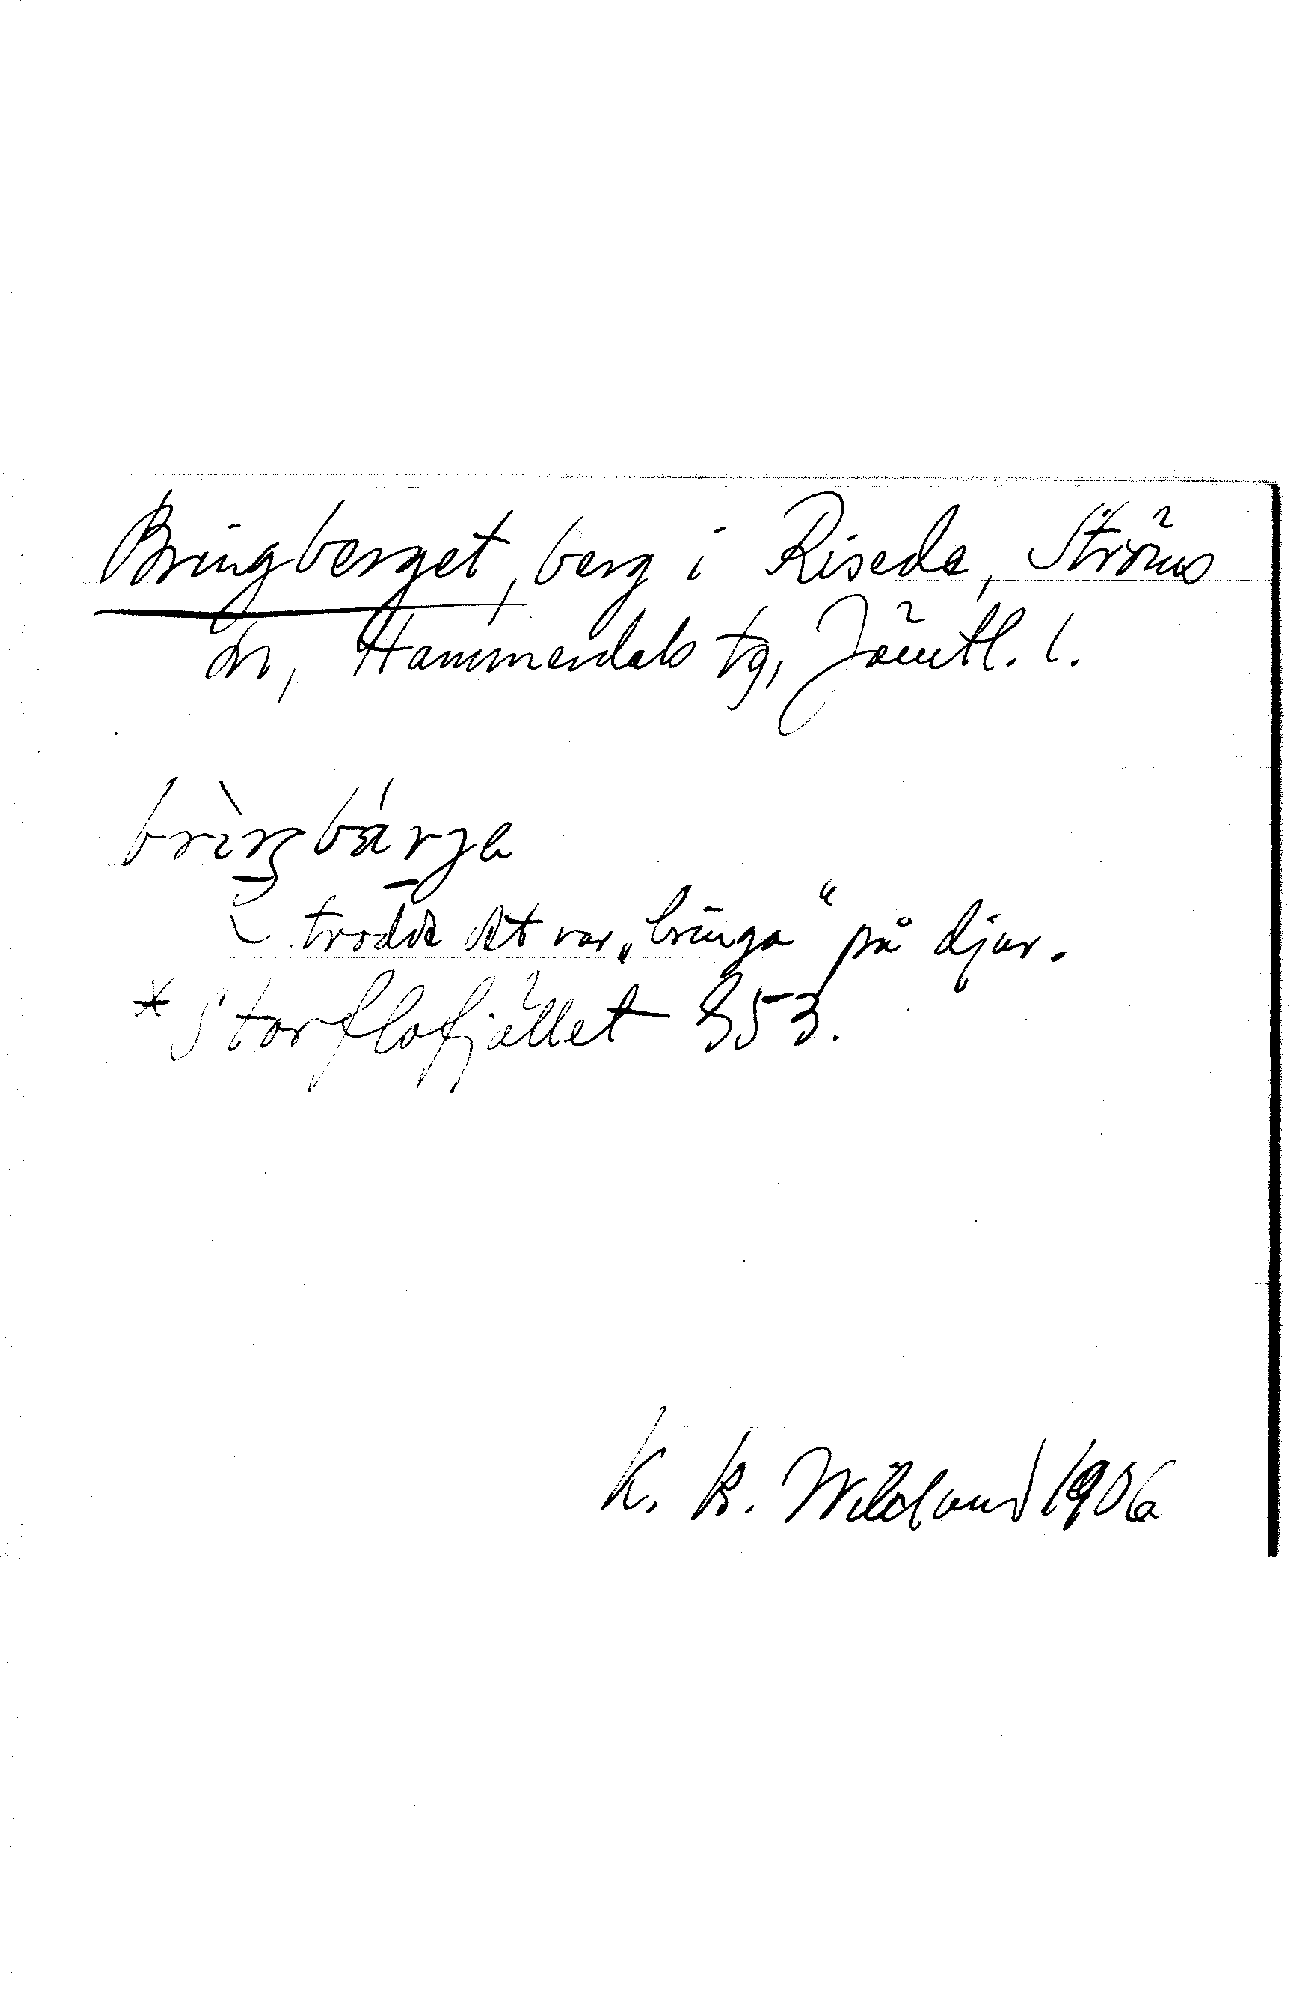 Bringberget, berg i Risede, Ströms
sn, Hammerdals tg, Jämtl. l.
brìŋbárja
trodde det var „bringa“ på djur.
* Storflofjället 353.
K. B. Wiklund 1906